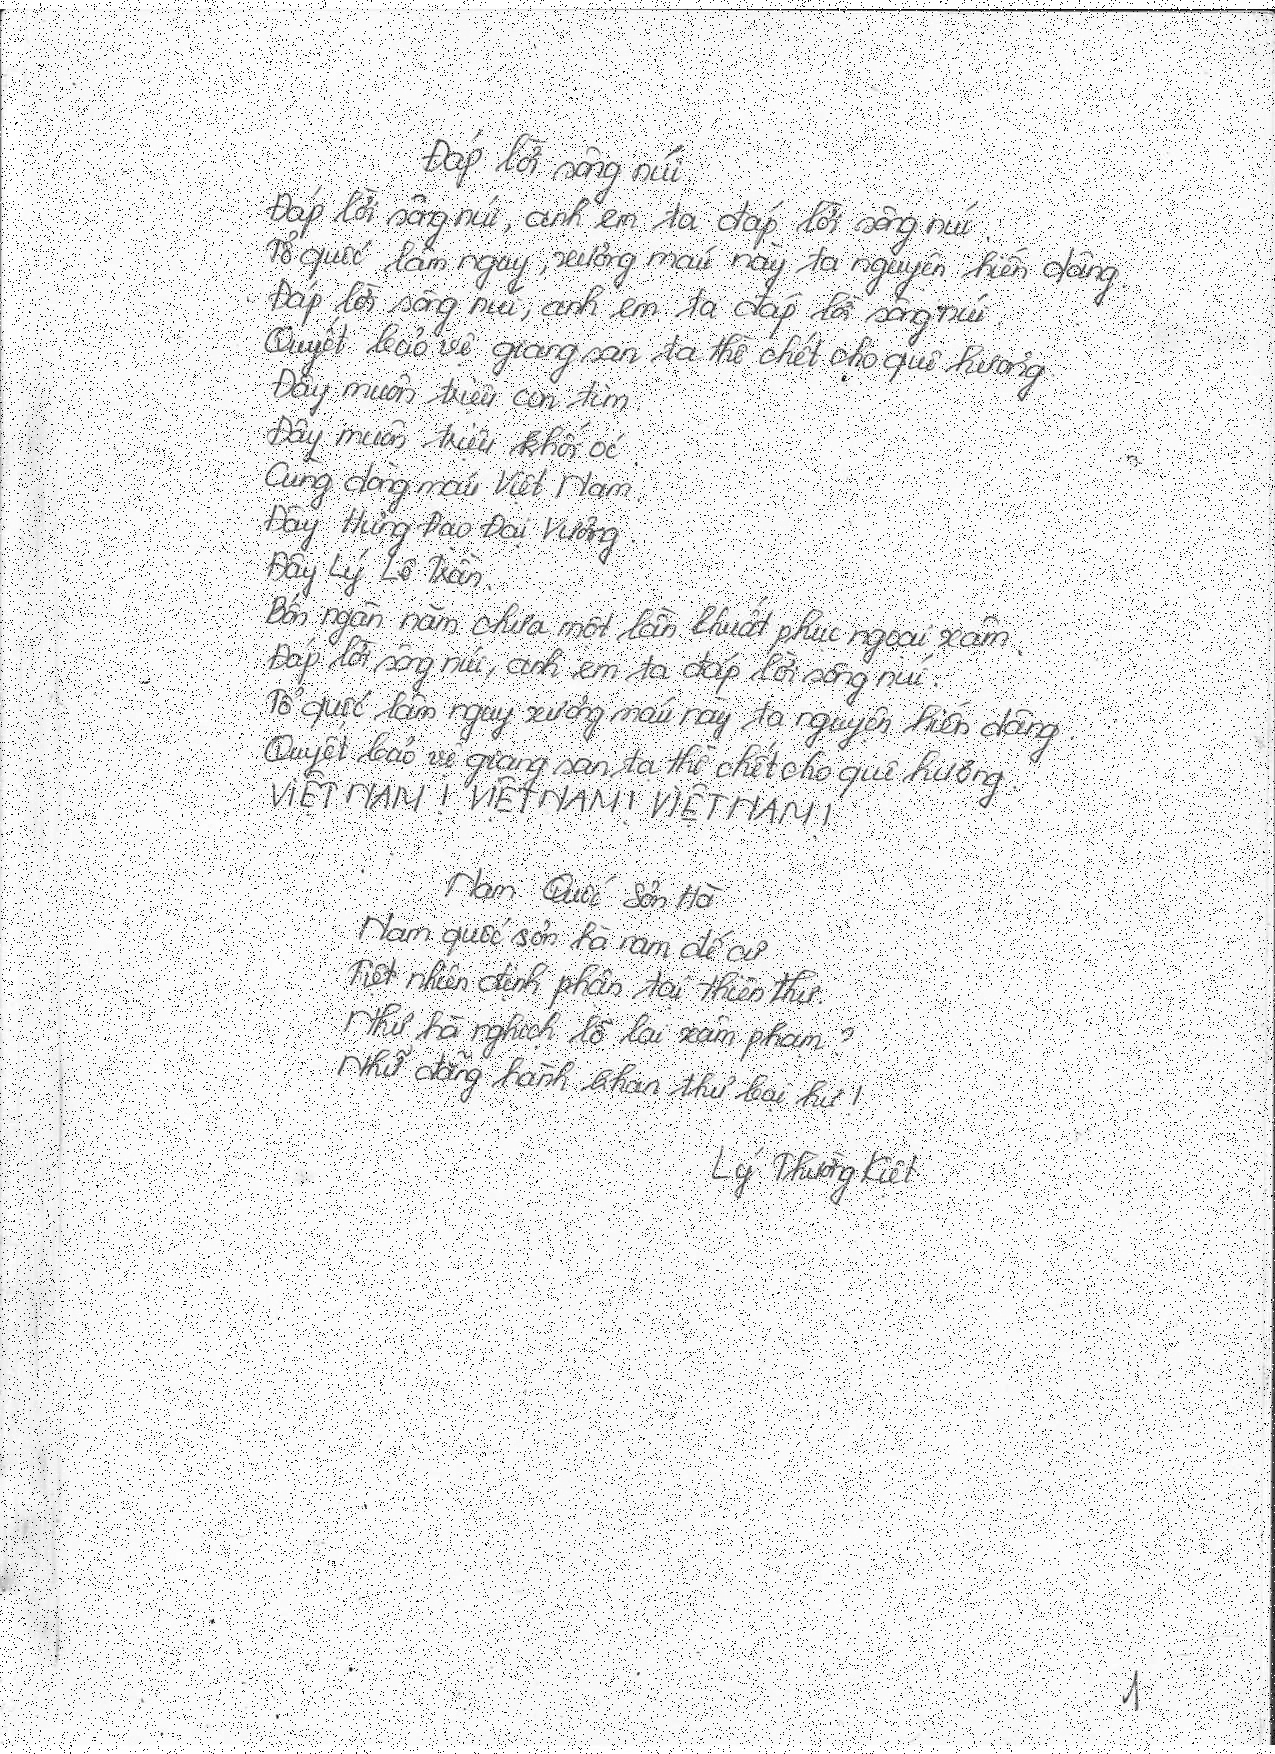 Đáp lời sông núi
Đáp lời sông núi, anh em ta đáp lời sông núi.
Tổ quốc lâm nguy, xương máu này ta nguyện hiến dâng.
Đáp lời sông núi, anh em ta đáp lời sông núi
Quyết bảo vệ giang san ta thề chết cho quê hương
Đây muôn triệu con tim
Đây muôn triệu khối óc
Cùng dòng máu Việt Nam
Đây Hưng Đạo Đại Vương.
Đây Lý Lê Trần.
Bốn ngàn năm chưa một lần khuất phục ngoại xâm
Đáp lời sông núi, anh em ta đáp lời sông núi.
Tổ quốc lâm nguy xương máu này ta nguyện hiến dâng.
Quyết bảo vệ giang san, ta thề chết cho quê hương.
VIỆT NAM! VIỆT NAM! VIỆT NAM!
Nam Quốc Sơn Hà
Nam quốc sơn hà nam đế cư
Tiệt nhiên định phận tại thiên thư.
Như hà nghịch lỗ lai xâm phạm?
Nhữ đẳng hành khan thư bại hư!
Lý Thường Kiệt
1